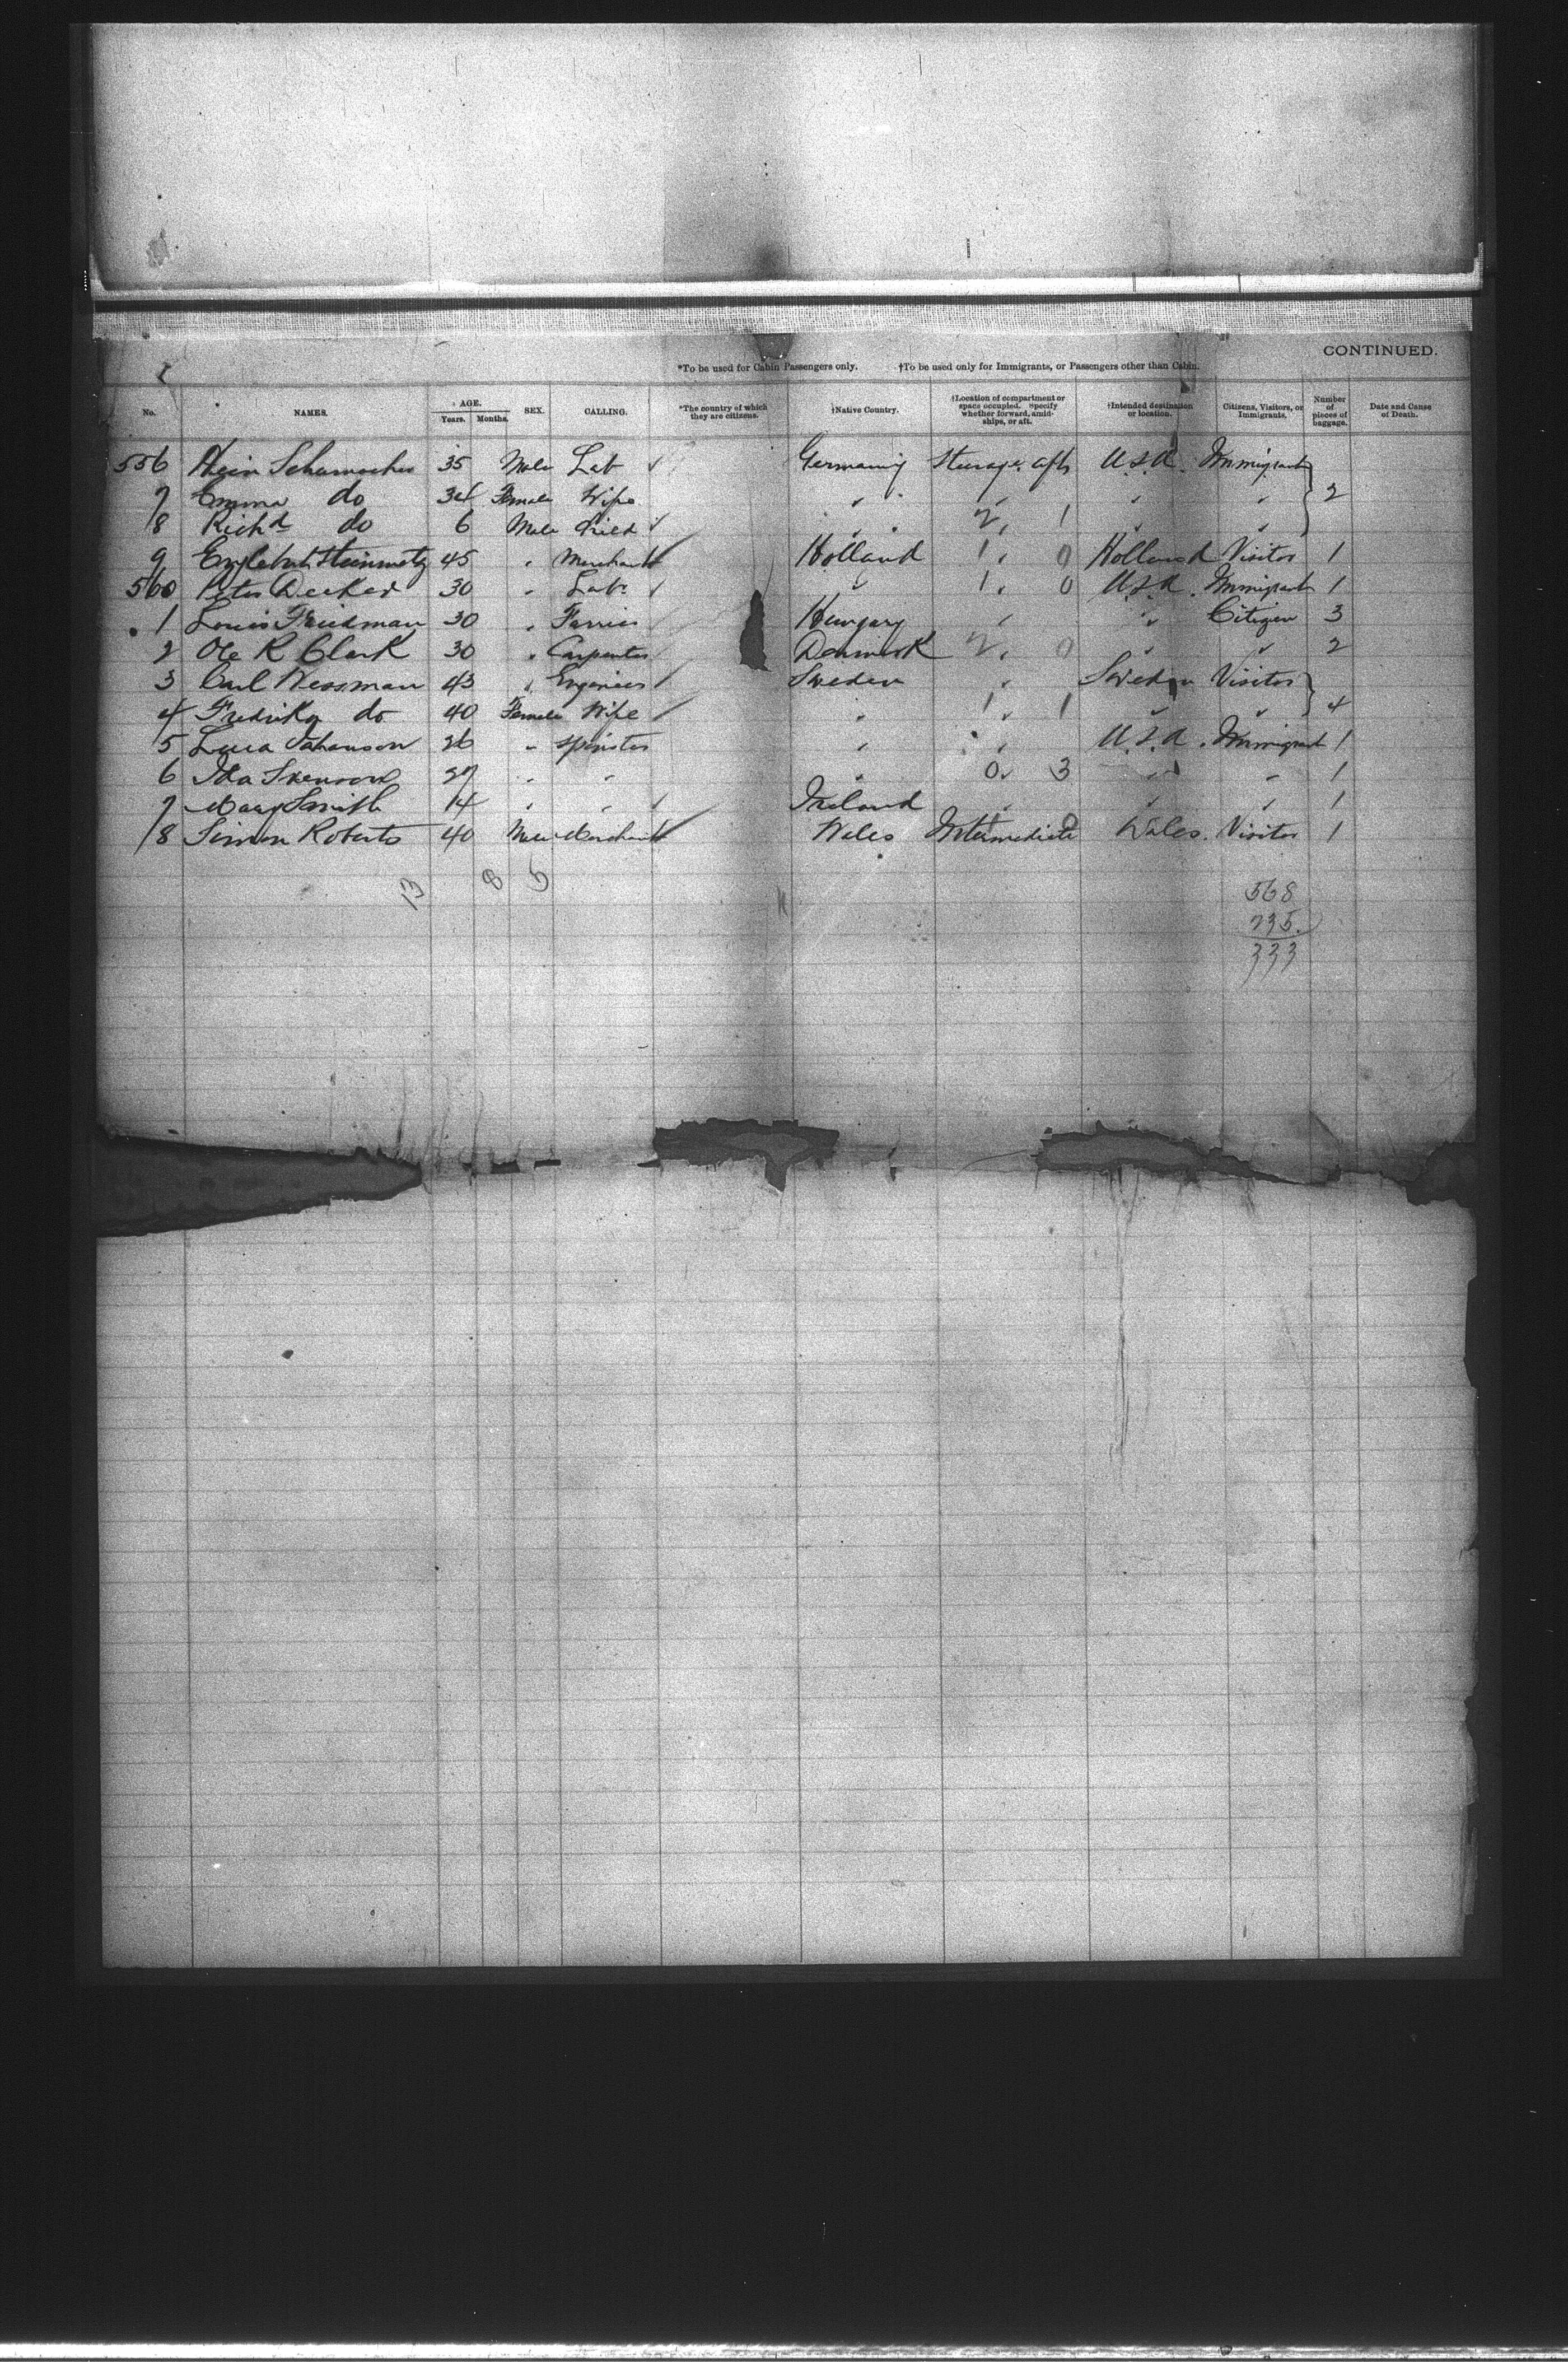 CONTINUED.
*To be used for Cabin Passengers only. †To be used only for Immigrants, or Passengers other than Cabin.
No. NAMES. AGE. Years. Months. SEX. CALLING. *The country of which they are citizens. †Native Country. †Location of compartment or space occupied. Specify whether forward, amidships, or aft. †Intended destination or location. Citizens, Visitors, or Immigrants. Number of pieces of baggage. Date and Cause of Death.
556 Hein Schumacher 35 Male Lab Germany Steerage aft U.S.A. Immigrant
7 Emma do 34 Female Wife " " " " 2
8 Richd do 6 Male Child " 2 " 1 " "
9 Steinmetz 45 " Merchant Holland 1 " 0 Holland Visitor 1
560 Peter Decker 30 " Labr " 1 " 0 U.S.A. Immigrant 1
1 Louis Friedman 30 " Farrier Hungary " " Citizen 3
2 Ole R Clark 30 " Carpenter Denmark 2 " 0 " " 2
3 Carl Wessman 43 " Engineer Sweden " Sweden Visitor
4 Fredrika do 40 Female Wife " 1 " 1 " " 4
5 Johanson 26 " Spinster " " U.S.A. Immigrant 1
6 Ida Svenson 27 " " " 0 " 3 " " 1
7 Mary Smith 14 " " Ireland " " " 1
8 Simon Roberts 40 Male Merchant Wales Intermediate Wales. Visitor 1
13 8 5
568
235.
333